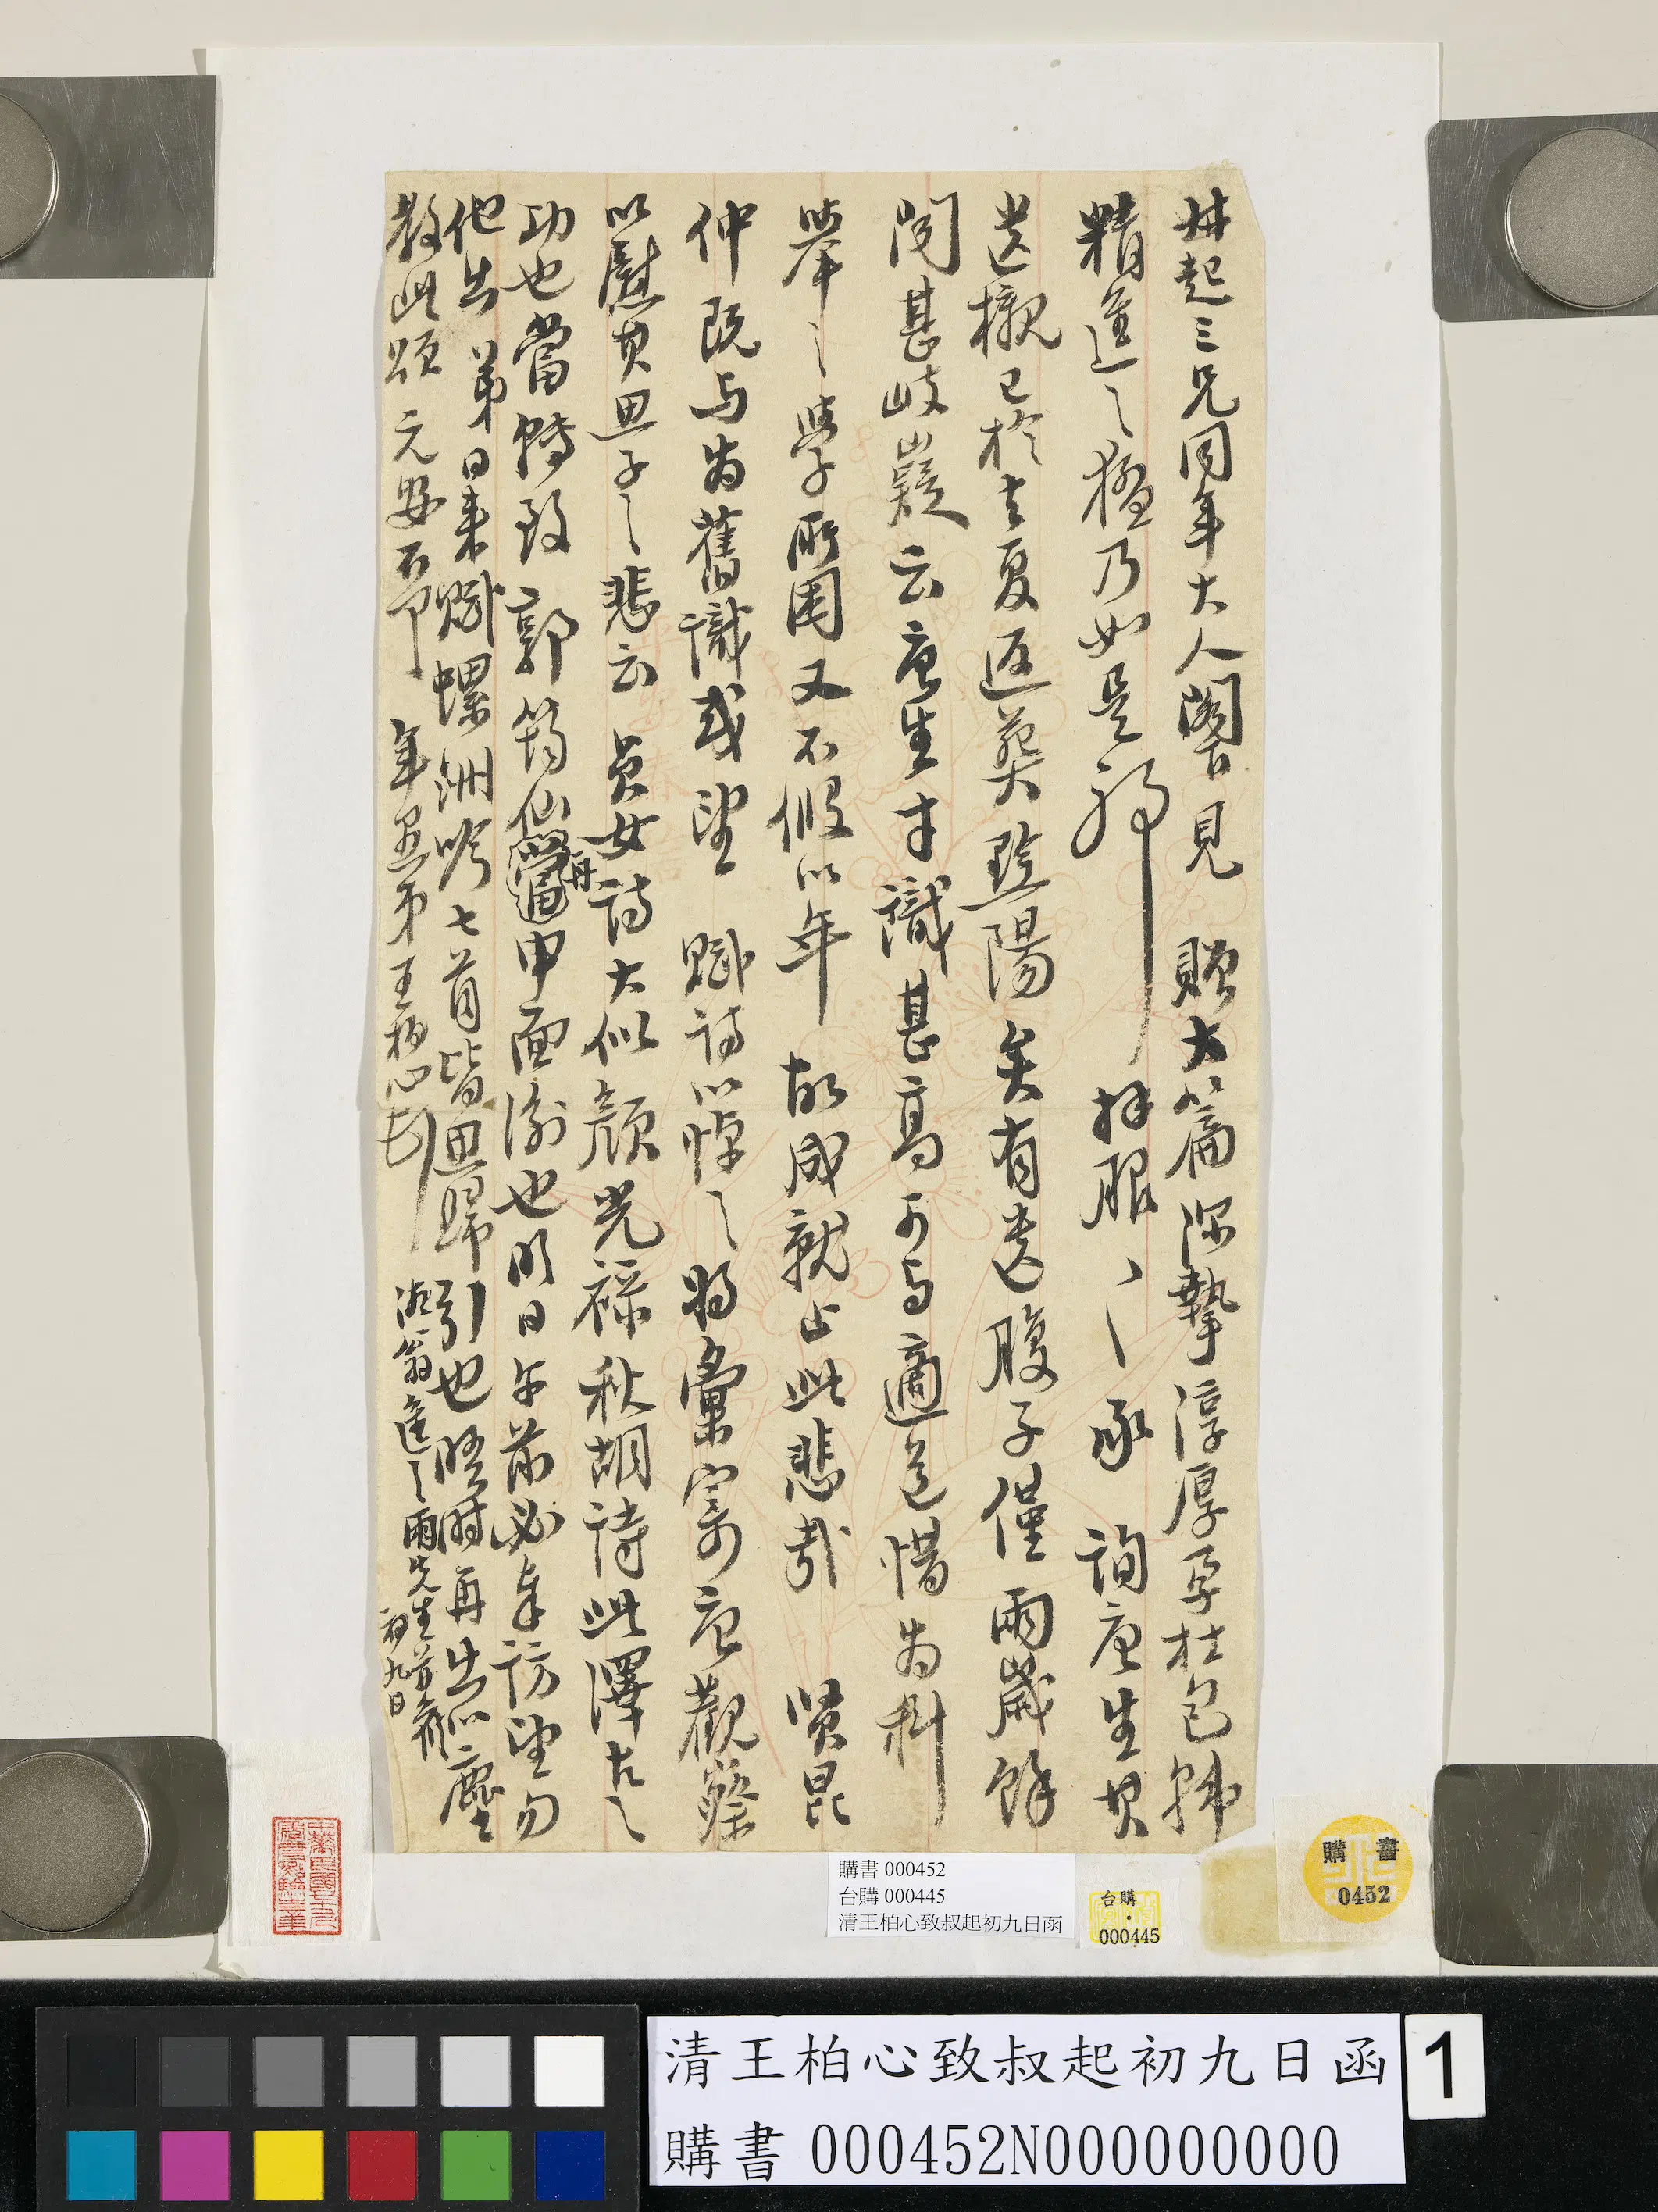 叔起三兄同年大人閣下見 贈大篇深摯淳厚孕杜包韓
精進之猛乃如是耶 拜服〻〻 承 詢唐生貫
送櫬已於去夏返葬黔陽矣有遺腹子僅兩歲餘
聞甚岐嶷云唐生才識甚高可与適道惜为科
舉之學所囿又不假以年 故成就止此悲哉 賢昆
仲既与为舊識或望 賦詩以悼之將彙寄唐觀察
以慰其思子之悲云 貞女詩大似顏光祿秋胡詩此澤古之
功也當轉致 郭筠仙當再申面謝也明日午前必奉訪望勿
他出 弟日来賦螺洲吟七首皆思歸引也晤時再出以塵
教此頌 元安不一 年愚弟王柏心頓首
湘翁 雨先生前
初九日
購書 000452
台購 000445
清王柏心致叔起初九日函
台購
000445
購書
0452
清王柏心致叔起初九日函
購書 000452N000000000
1